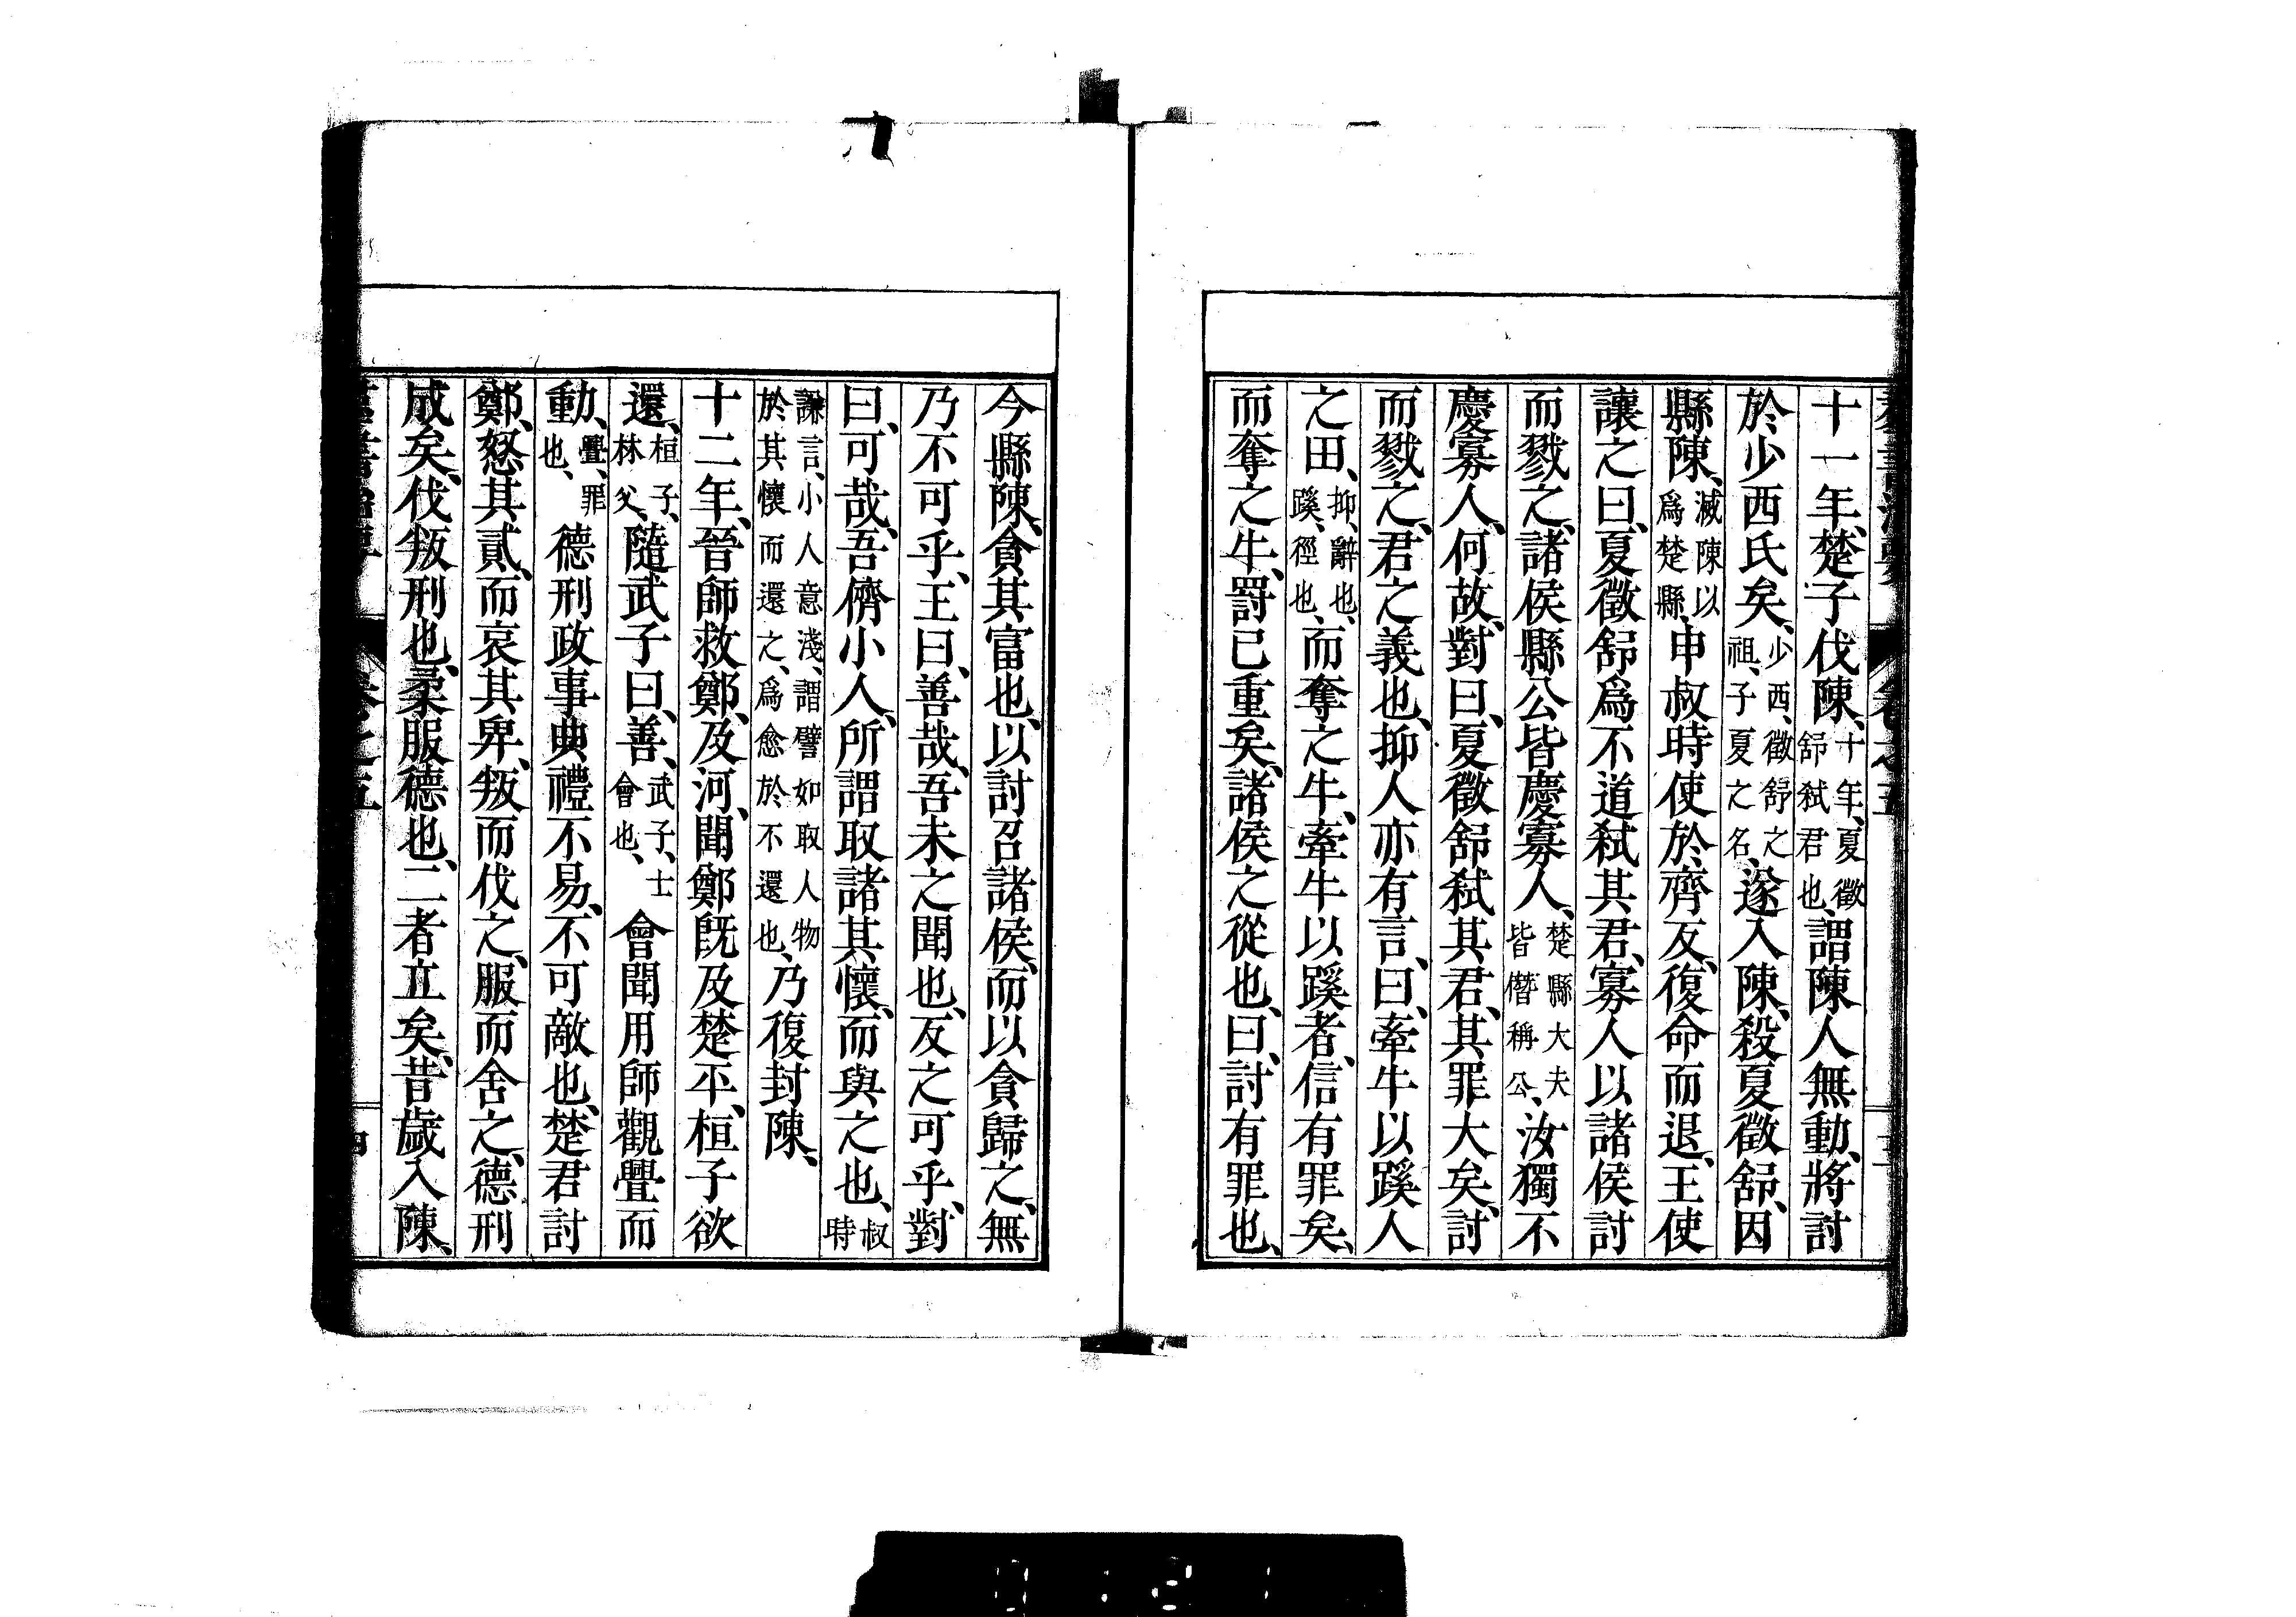 十一年、楚子伐陳、十年、夏徵舒弑君也、謂陳人無動、將討
於少西氏矣、少西、徵舒之祖、子夏之名、遂入陳、殺夏徵舒、因
縣陳、滅陳以爲楚縣、申叔時使於齊反、復命而退、王使
讓之曰、夏徵舒爲不道弑其君、寡人以諸侯討
而戮之、諸侯縣公皆慶寡人、楚縣大夫皆僭稱公、汝獨不
慶寡人、何故、對曰、夏徵舒弑其君、其罪大矣、討
而戮之、君之義也、抑人亦有言、曰、牽牛以蹊人
之田、抑、辭也、蹊、徑也、而奪之牛、牽牛以蹊者、信有罪矣、
而奪之牛、罸已重矣、諸侯之從也、曰、討有罪也、
今縣陳、貪其富也、以討召諸侯、而以貪歸之、無
乃不可乎、王曰、善哉、吾未之聞也、反之可乎、對
曰、可哉、吾儕小人、所謂取諸其懷、而與之也、叔時
謙言、小人意淺、謂譬如取人物於其懷而還之、爲愈於不還也、乃復封陳、
十二年、晉師救鄭、及河、聞鄭旣及楚平、桓子欲
還、桓子、林父、隨武子曰、善、武子、士會也、會聞用師觀釁而
動、釁、罪也、德刑政事典禮不易、不可敵也、楚君討
鄭、怒其貳、而哀其卑、叛而伐之、服而舍之、德刑
成矣、伐叛刑也、柔服德也、二者立矣、昔歲入陳、